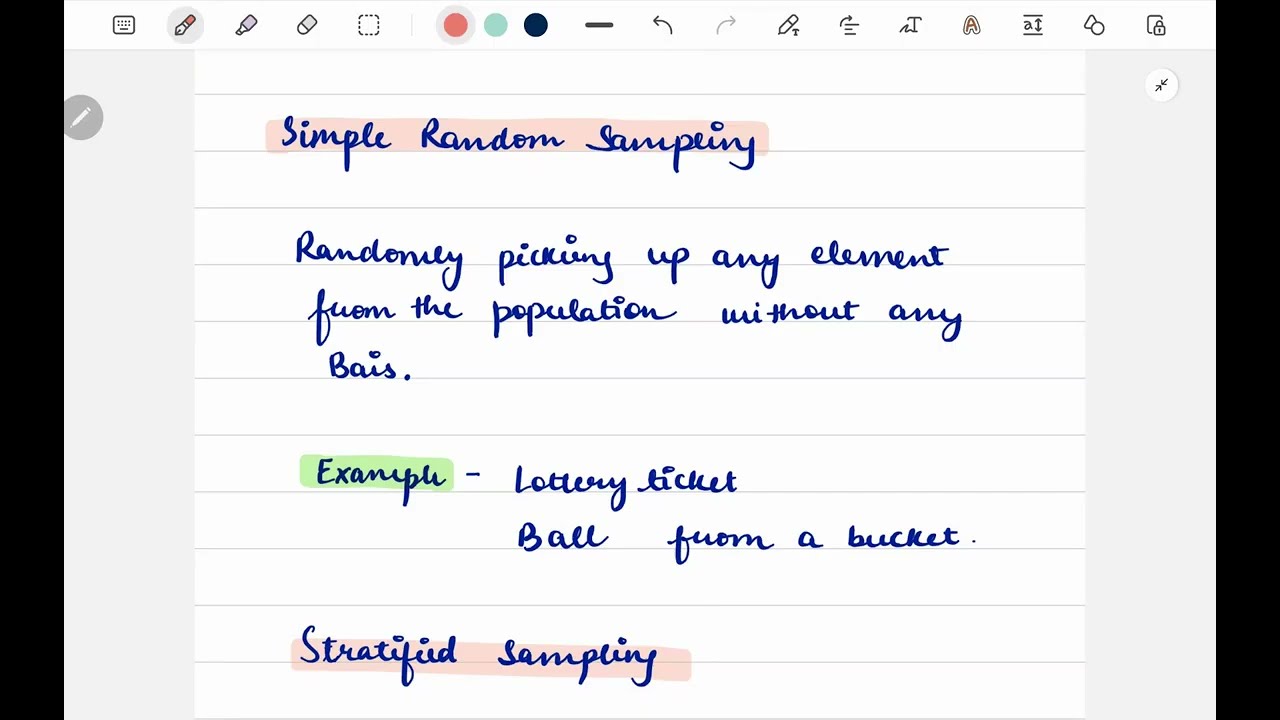 Simple Random Sampling
Randomly picking up any element
from the population without any
Bais.
Example - Lottery ticket
Ball from a bucket.
Stratified Sampling